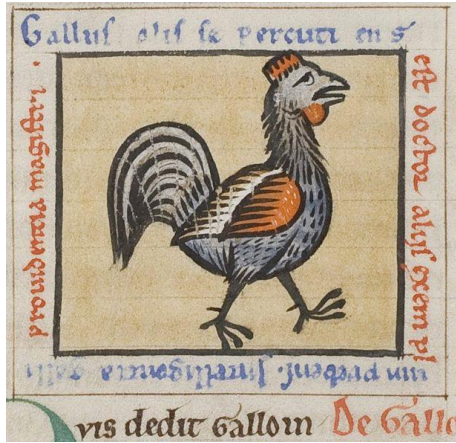 Gallus alis se percuti en s
est doctor aliis exempl
um prebens. intelligencia galli
prouidentia magistri.
vis dedit Gallo in De Gallo